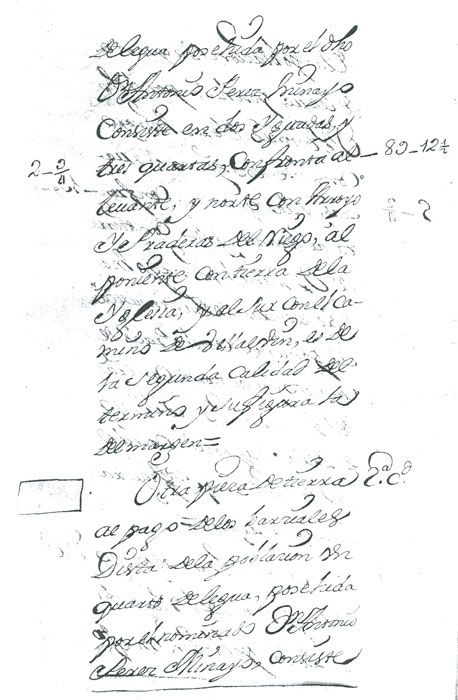 de legua posehida por el dho
Dn Antonio Perez Minayo
Consiste en dos Yguadas, y
2-3/4 tres quartas, Confronta al 89-12½
levante, y norte con Arroyo
Y Praderas del Niego, al
poniente con tierra de la
Yglesia, y al sur con el Ca-
mino de es de
la segunda Calidad del
termino y su figura la
del margen=
Otra pieza de tierra 2ª Cd
al pago de los barriales
Dista de la poblacion Vn
quarto de legua, posehida
por el nominado Dn Antonio
Perez Minayo, Consiste